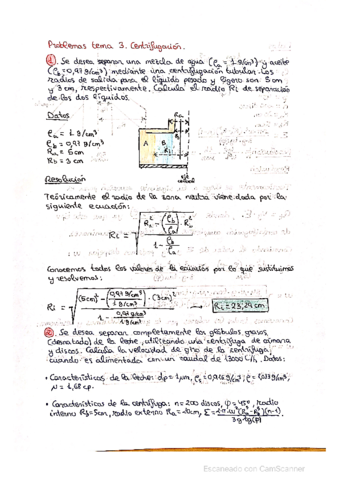 Problemas tema 3. Centrifugación.
① Se desea separar una mezcla de agua (ρa = 1 g/cm³) y aceite
(ρb = 0,97 g/cm³) mediante una centrifugación tubular. Los
radios de salida para el líquido pesado y ligero son 5 cm
y 3 cm, respectivamente. Calcula el radio Ri de separación
de los dos líquidos.
Datos
ρa = 1 g/cm³
ρb = 0,97 g/cm³
Ra = 5 cm
Rb = 3 cm
A B
Resolución
Teóricamente el radio de la zona neutra viene dada por la
siguiente ecuación:
Ri = √((Ra² - (ρb/ρa) · Rb²) / (1 - ρb/ρa))
Conocemos todos los valores de la ecuación por lo que sustituimos
y resolvemos:
Ri = √(((5cm)² - (0,97 g/cm³ / 1 g/cm³) · (3cm)²) / (1 - 0,97 g/cm³ / 1 g/cm³)) → Ri = 23,29 cm
② Se desea separar completamente los glóbulos grasos
(desnatado) de la leche, utilizando una centrífuga de cámara
y discos. Calcula la velocidad de giro de la centrífuga
cuando es alimentada con un caudal de 13000 L/h. Datos:
• Características de la leche: dp = 1 μm,
μ = 1,68 cp.
• Características de la centrífuga: n = 200 discos, φ = 45°, radio
interno Rb = 5cm, radio externo Ra = 10cm,
Escaneado con CamScanner